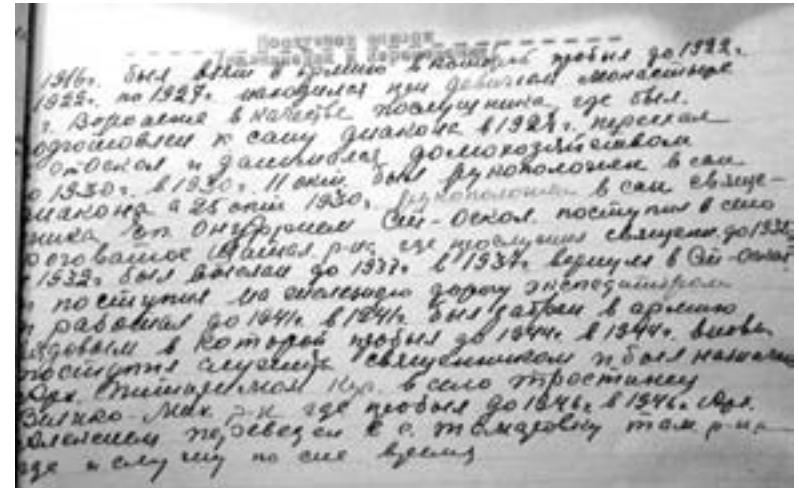 Послужной список
1916г. был взят в армию в которой пробыл до 1922г.
1922г. по 1927г. находился при девичьем монастыре
г. Воронежа в качестве послушника, где был
подготовлен к сану диакона в 1927г. переехал
Оскол и занимался домохозяйством
до 1930г. в 1930г. 11 окт был рукоположен в сан
диакона а 25 окт 1930г. рукоположен в сан священ-
ника еп Онуфрием Ст-Оскол. поступил в село
где прослужил священ. до 1932г.
1932г. был выслан до 1937г. в 1937г. вернулся в Ст-Оскол
и поступил на железную дорогу экспедитором
и работал до 1941г. в 1941г. был забран в армию
рядовым в которой пробыл до 1944г. в 1944г. вновь
поступил священником и был назначен
Арх. Питиримом Кур. в село Тростинец
Велико-Мих р-н где пробыл до 1946г. в 1946г. Арх.
переведен в с. Томаровку Том. р-на
где и служу по сие время